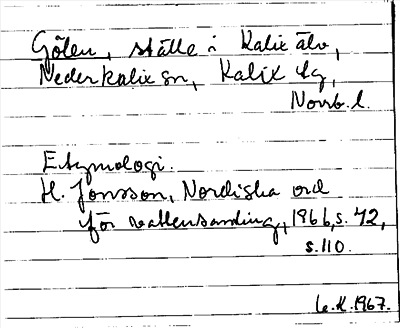 Gölen, ställe i Kalix älv,
Nederkalix sn, Kalix tg,
Norrb. l.
Etymologi.
H. Jonsson, Nordiska ord
för vattensamling, 1966, s. 42,
s. 110.
6.X.1967.